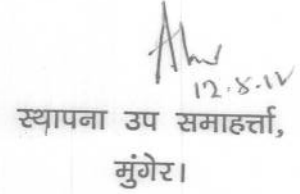 12.8.12
स्थापना उप समाहर्त्ता,
मुंगेर।